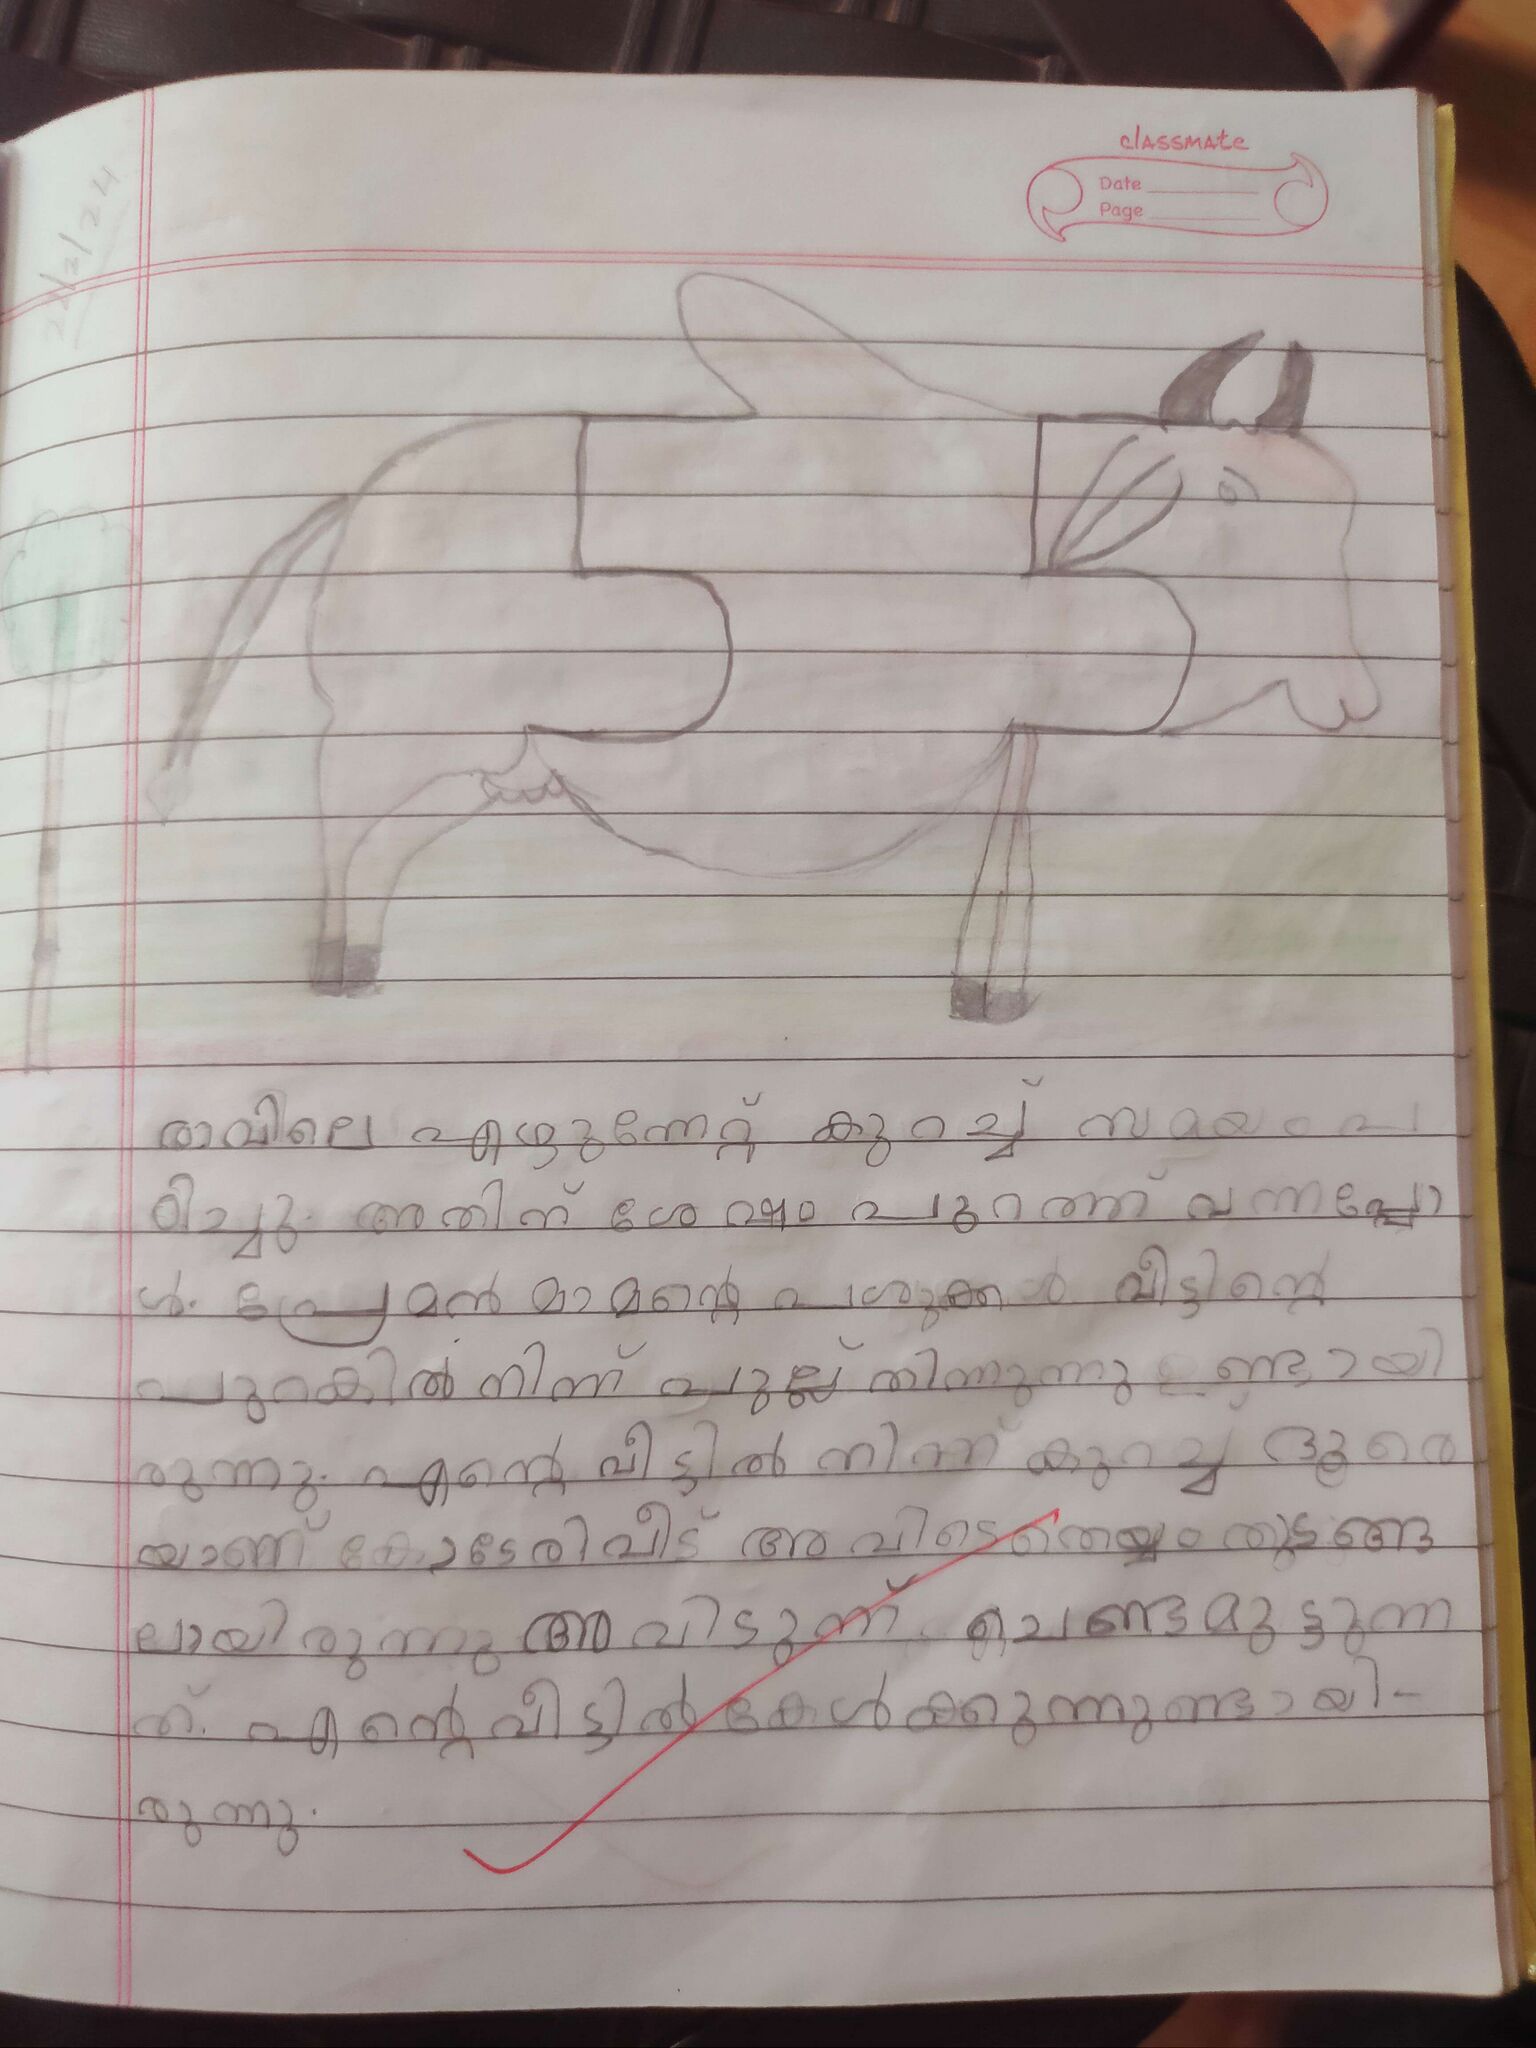 classmate
Date
Page
22/2/24
രാവിലെ എഴുന്നേറ്റ് കുറച്ച് സമയം പ
ഠിച്ചു. അതിന് ശേഷം പുറത്ത് വന്നപ്പോ
ൾ. പ്രേമൻ മാമന്റെ പശുക്കൾ വീട്ടിന്റെ
പുറകിൽ നിന്ന് പുല്ല് തിന്നുന്നു ഉണ്ടായി
രുന്നു. എന്റെ വീട്ടിൽ നിന്ന് കുറച്ച് ദൂരെ
യാണ് കോടേരിവീട് അവിടെ തെയ്യം തുടങ്ങ
ലായിരുന്നു അവിടുന്ന്. ചെണ്ടമുട്ടുന്ന
ത്. എന്റെ വീട്ടിൽ കേൾക്കുന്നുണ്ടായി-
രുന്നു.